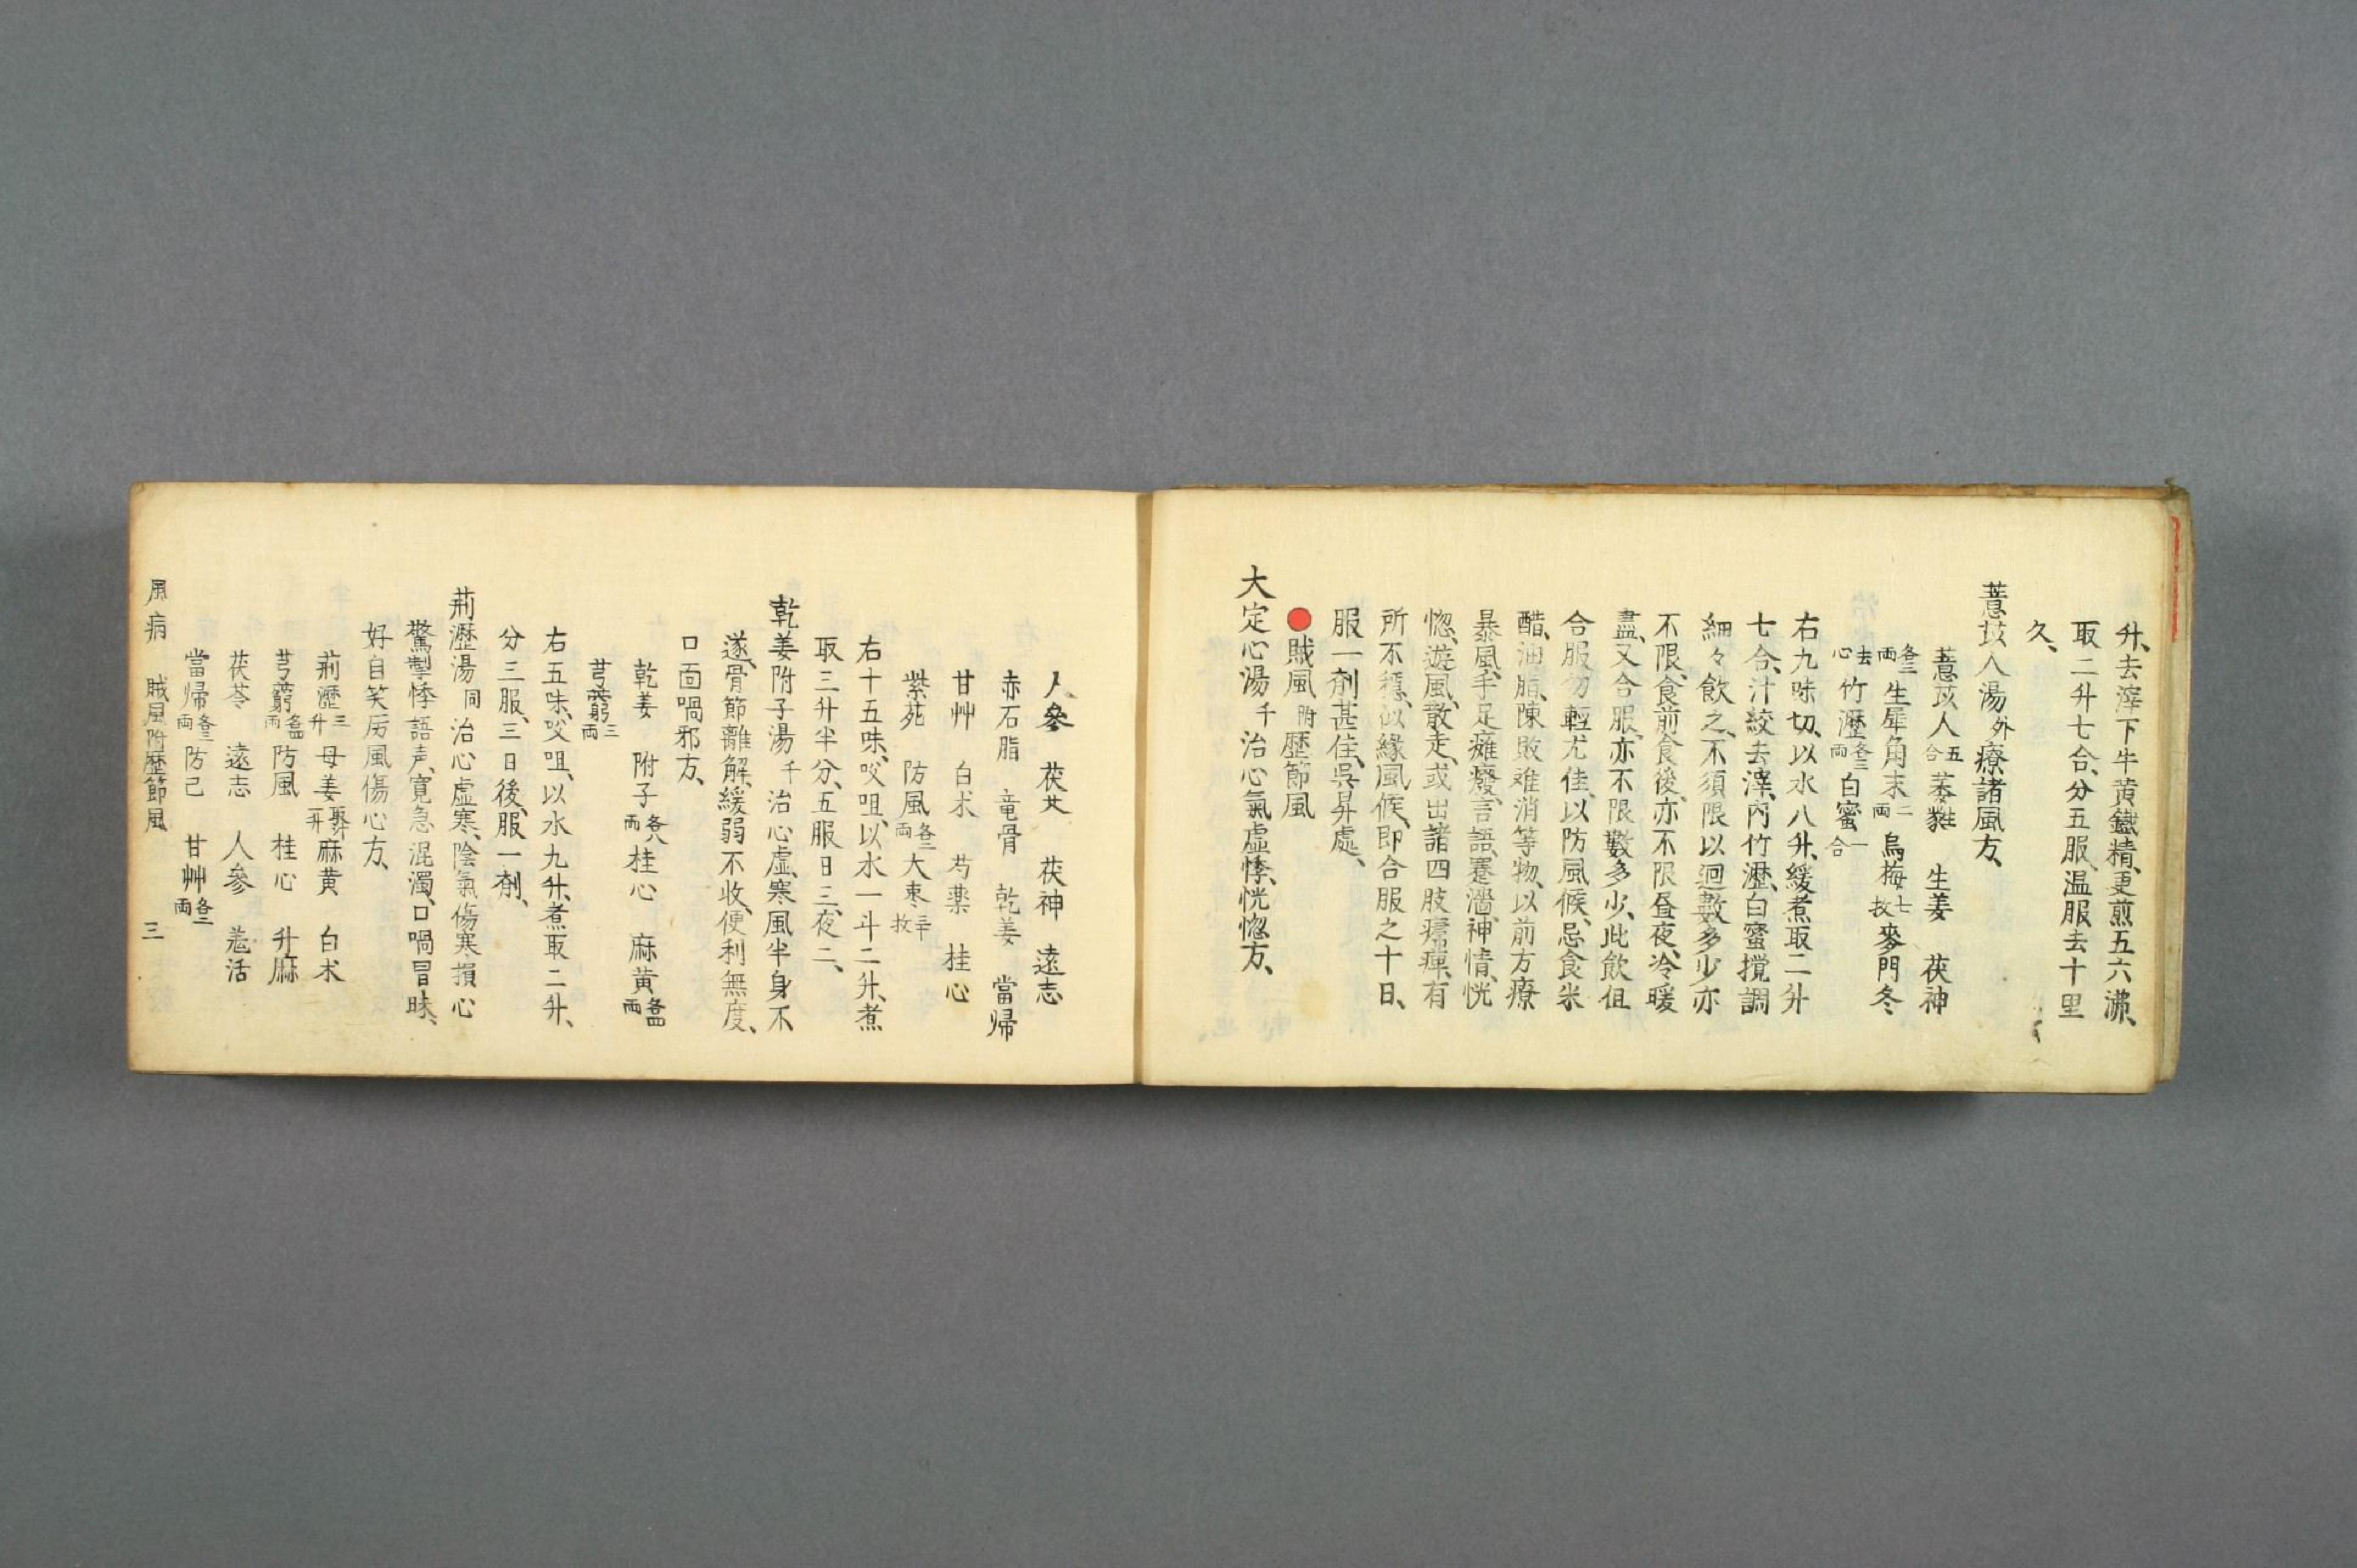 升、去滓下牛黄鐵精、更煎五六沸、
取二升七合、分五服、温服去十里
久、
薏苡人湯外療諸風方、
薏苡人五合 萎蕤 生姜 茯神
各三両 生犀角末二両 烏梅七枚 麥門冬
去心 竹瀝各三両 白蜜一合
右九味切、以水八升、緩煮取二升
七合、汁絞去滓、内竹瀝、白蜜攪調
細々飲之、不須限以迴數多少、亦
不限、食前食後、亦不限昼夜、冷暖
盡、又合服、亦不限數多少、此飲但
合服勿輕尤佳、以防風候、忌食米
醋、油脂、陳敗難消等物、以前方療
暴風、手足癱癈、言語蹇濇、神情、恍
惚、遊風、散走、或出諸四肢𤸷𤸷、有
所不穏、似緣風候、即合服之十日、
服一剤甚佳、吳昇處、
賊風附歴節風
大定心湯千治心氣虚悸、恍惚方、
人參 茯苓 茯神 遠志
赤石脂 竜骨 乾姜 當帰
甘艸 白朮 芍薬 桂心
紫苑 防風各二両 大枣二十枚
右十五味、㕮咀、以水一斗二升、煮
取三升半分、五服日三、夜二、
乾姜附子湯千治心虚、寒風半身不
遂、骨節離解、緩弱不收、便利無度、
口面喎邪方、
乾姜 附子各八両 桂心 麻黄各四両
芎藭三両
右五味、㕮咀、以水九升、煮取二升、
分三服、三日後、服一剤、
荊瀝湯同治心虚寒、陰氣傷寒損心
驚掣悸語声、寛急混濁、口喎冒昧、
好自笑厉風傷心方、
荊瀝三升 母姜取汁一升 麻黄 白朮
芎藭各四両 防風 桂心 升麻
茯苓 遠志 人參 羗活
當帰各二両 防己 甘艸各二両
風病 賊風附歴節風 三